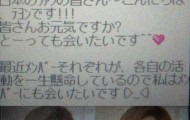 日本のﾌｧﾝの皆さん～こんにちは
ﾌｧﾝです!!!
皆さんお元気ですか?
とーっても会いたいです^^
最近ﾒﾝﾊﾞｰそれぞれが、各自の活
動を一生懸命しているので私はﾒﾝ
ﾊﾞｰにも会いたいですD_D